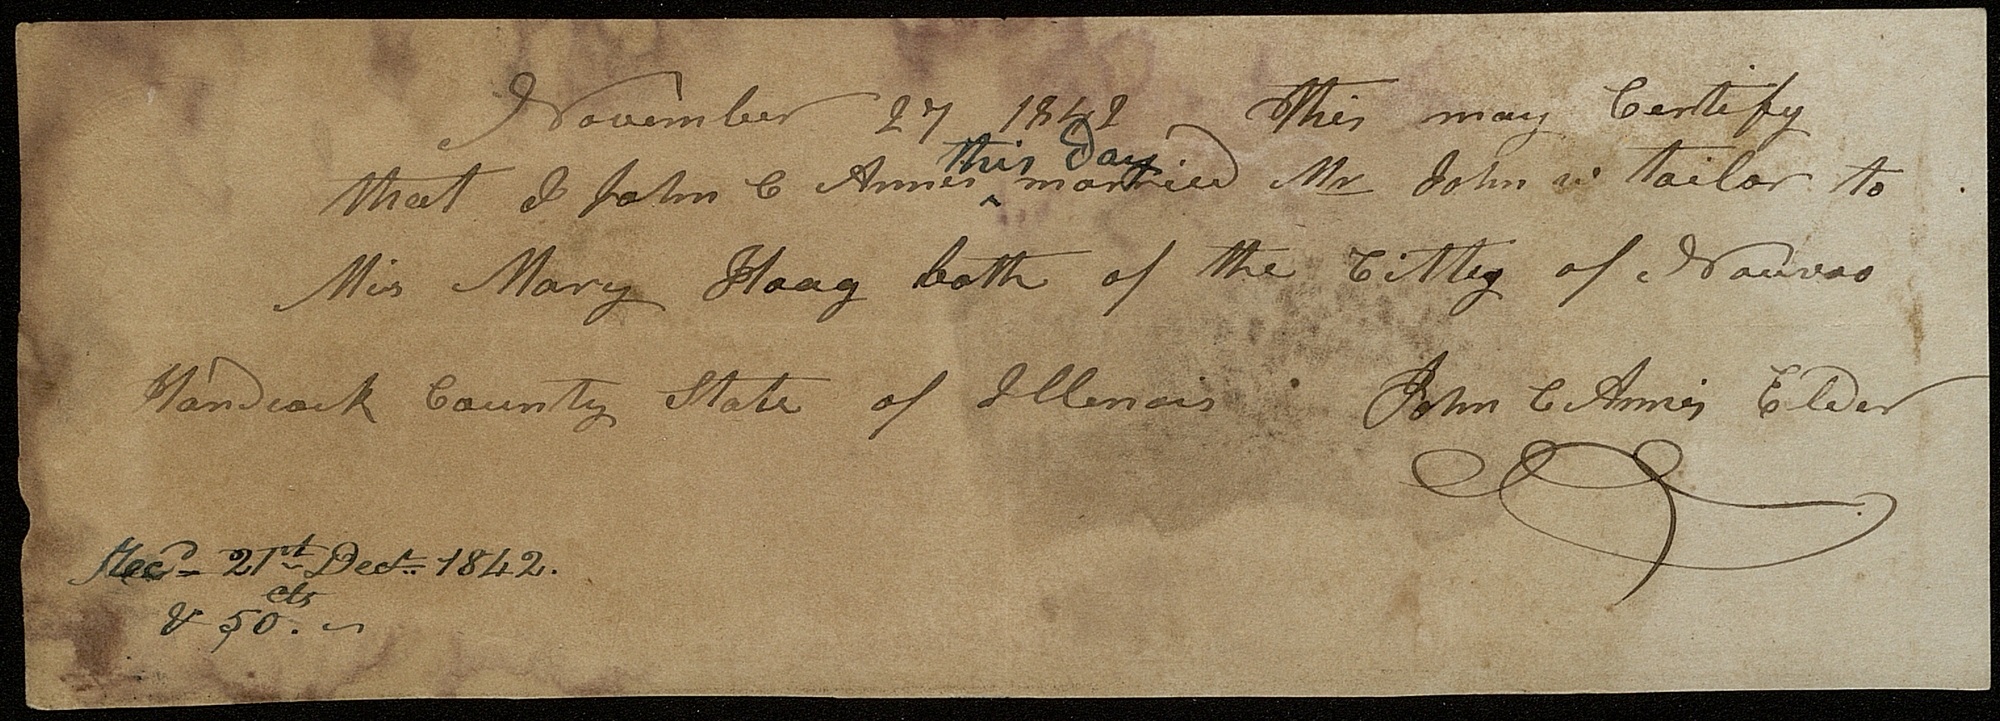 November 27 1842 This may Certify
this Day
that I John C Annis ^ married Mr John w tailor to
Mis Mary Haag both of the Citty of Nauvoo
Handcock County State of Illenois John C Annis Elder
Recd 21st Decr. 1842.
cts
& 50.